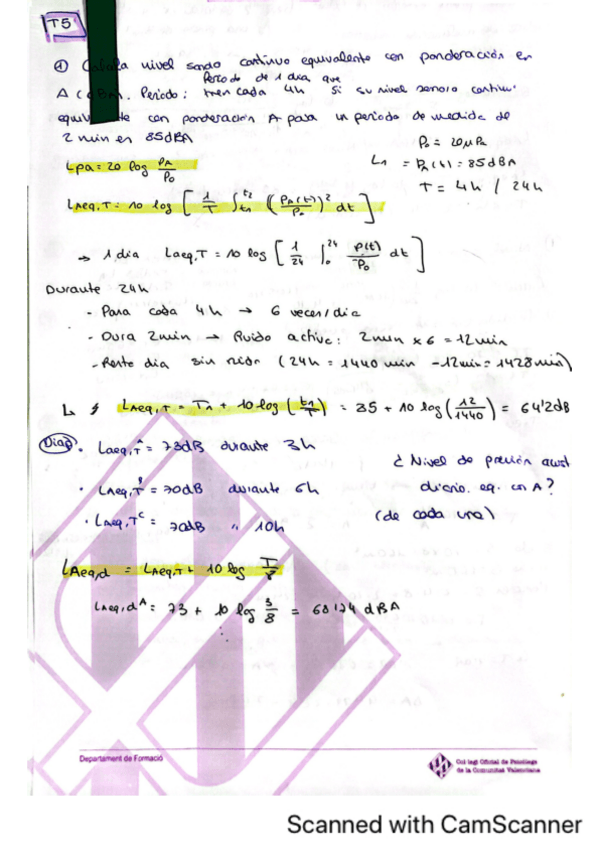 T5
① Calcula nivel sonoro continuo equivalente con ponderación en
Periodo de 1 dia que
A (dBA). Periodo: tren cada 4h si su nivel sonoro continuo
equivalente con ponderación A para un periodo de medida de
2 min en 85dBA
P₀ = 20μPa
LPA = 20 log PA/P₀
L₁ = PA(t) = 85dBA
T = 4h / 24h
LAeq,T = 10 log [ 1/T ∫t₁^t₂ (PA(t)/P₀)² dt ]
→ 1 dia Laeq,T = 10 log [ 1/24 ∫₀²⁴ P(t)/P₀ dt ]
Durante 24h
- Para cada 4h → 6 veces/dia
- Dura 2min → Ruido activo: 2min x 6 = 12min
- Resto dia sin ruido (24h = 1440 min - 12min = 1428min)
LAeq,T = T₁ + 10 log (t₁/T) = 85 + 10 log (12/1440) = 64'2dB
Diap. Laeq,T^A = 73dB durante 3h
¿Nivel de presión acust
· LAeq,T = 70dB durante 6h
diario. eq. en A?
· LAeq,T^C = 70dB " 10h
(de cada una)
LAeq,d = LAeq,T + 10 log T/8
LAeq,d^A = 73 + 10 log 3/8 = 68'74 dBA
Departament de Formació
Col·legi Oficial de Psicòlegs
de la Comunitat Valenciana
Scanned with CamScanner